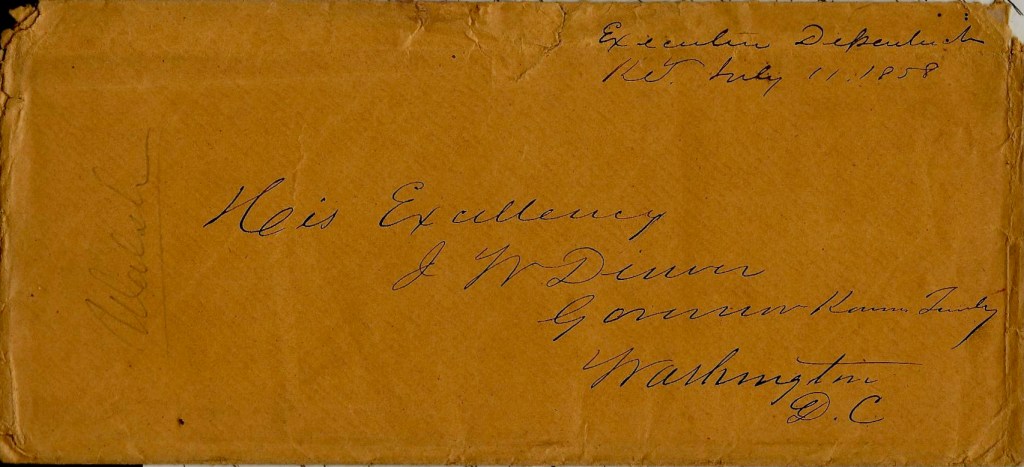 Executive Department
K.T. July 11, 1858
His Excellency
J W Denver
Governor Kansas Territy
Washington
D. C
Walsh